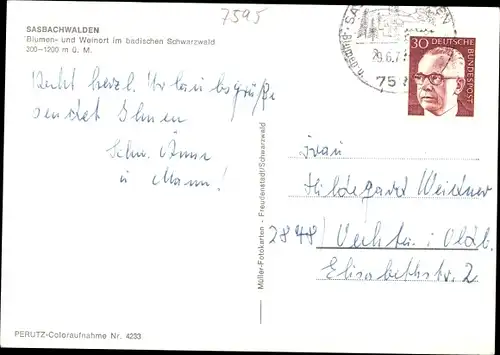 7595
SASBACHWALDEN
Blumen- und Weinort im badischen Schwarzwald
200–1200 m ü. M.
Recht herzl. Urlaubsgrüße
sendet Ihnen
Schw. Anna
u Mann!
Müller-Fotokarten - Freudenstadt/Schwarzwald
30 DEUTSCHE
BUNDESPOST
29.6.7
759
Frau
Hildegard Weidner
2848 Vechta i. Oldb.
Elisabethstr. 2
PERUTZ-Coloraufnahme Nr. 4233